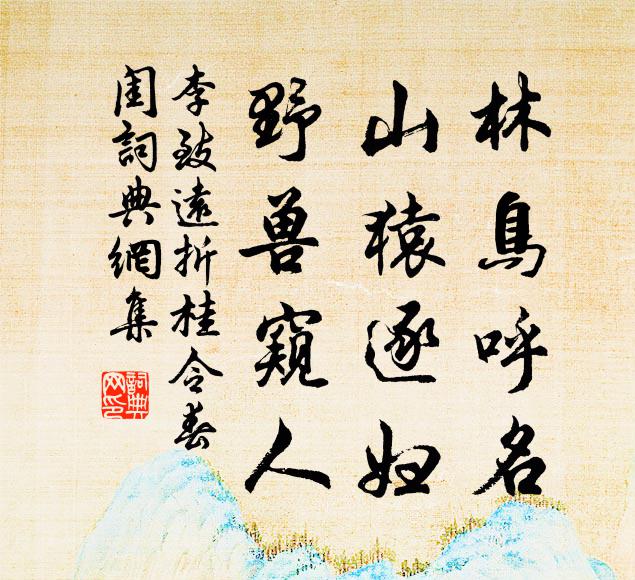 林鳥呼名
山猿逐妇
野兽窺人
李致遠折桂令春
闺詞典網集
詞典网印